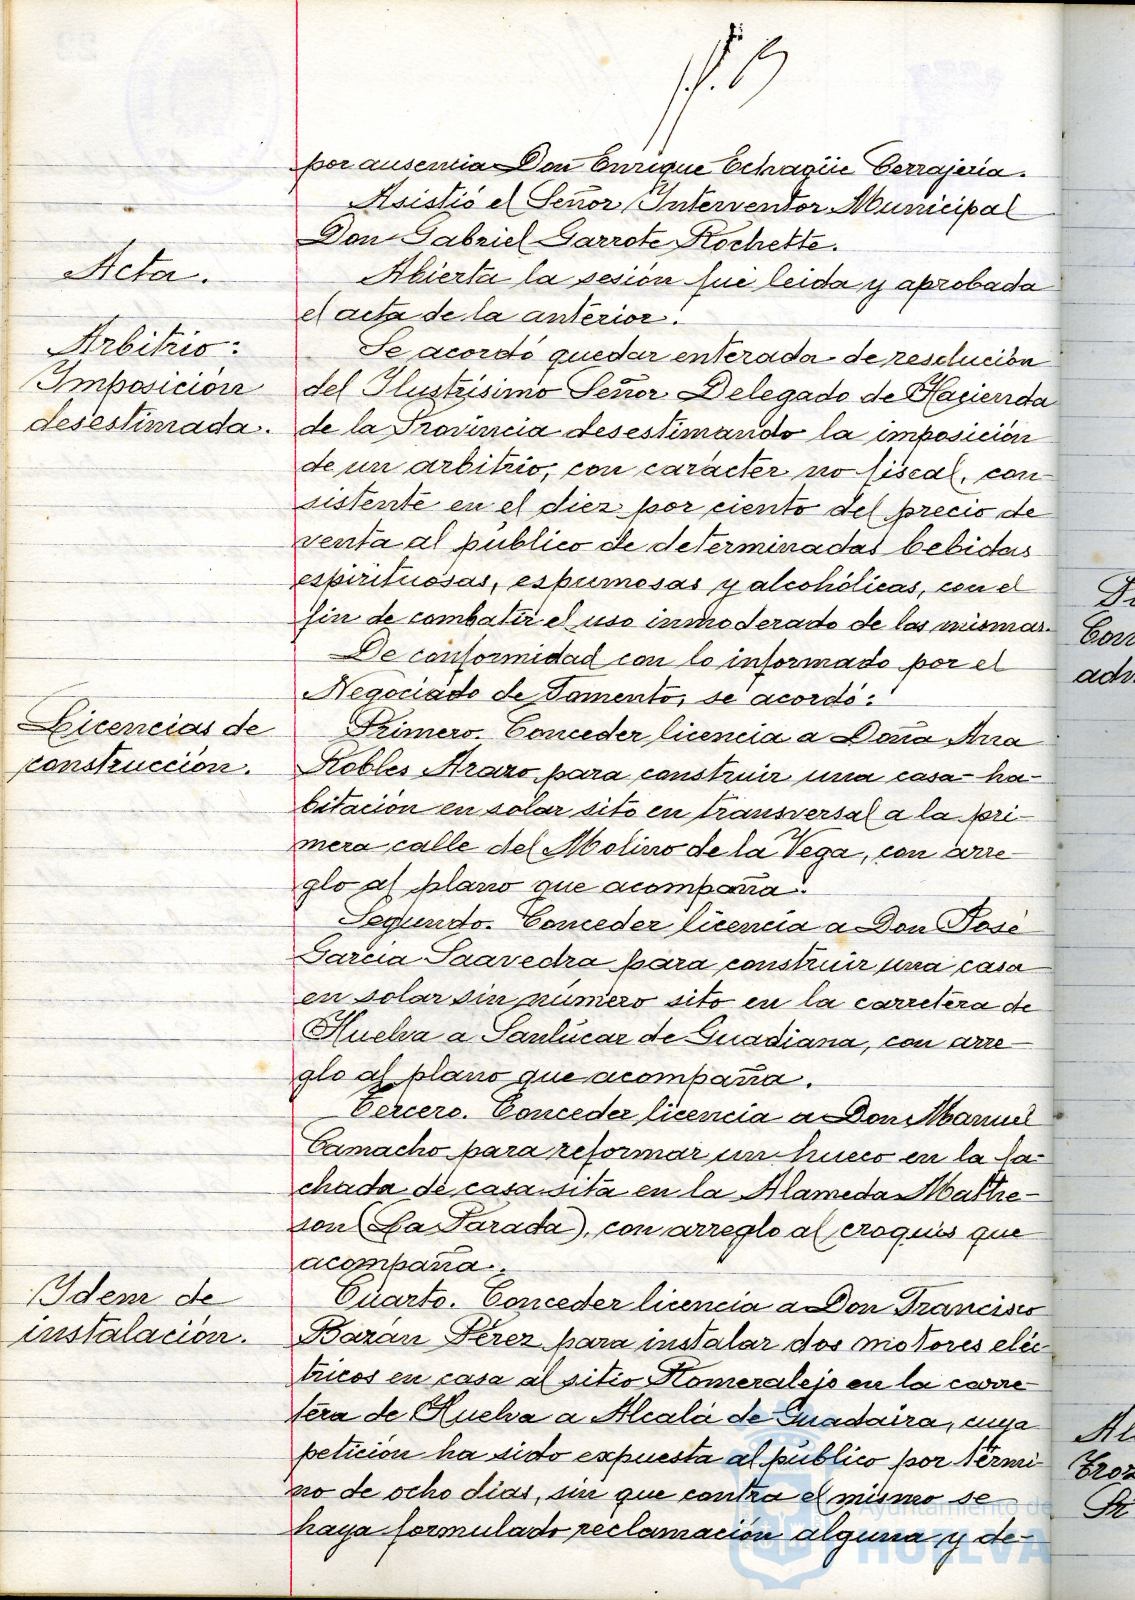 por ausencia Don Enrique Echagüe Cerrajería.
Asistió el Señor Interventor Municipal
Don Gabriel Garrote Rochette.
Acta.
Abierta la sesión fué leida y aprobada
el acta de la anterior.
Arbitrio:
Imposición
desestimada.
Se acordó quedar enterada de resolución
del Ilustrísimo Señor Delegado de Hacienda
de la Provincia desestimando la imposición
de un arbitrio, con carácter no fiscal, con-
sistente en el diez por ciento del precio de
venta al público de determinadas bebidas
espirituosas, espumosas y alcohólicas, con el
fin de combatir el uso inmoderado de las mismas.
De conformidad con lo informado por el
Negociado de Fomento, se acordó:
Licencias de
construcción.
Primero. Conceder licencia a Doña Ana
Robles Arazo para construir una casa-ha-
bitación en solar sito en transversal a la pri-
mera calle del Molino de la Vega, con arre-
glo al plano que acompaña.
Segundo. Conceder licencia a Don José
García Saavedra para construir una casa
en solar sin número sito en la carretera de
Huelva a Sanlúcar de Guadiana, con arre-
glo al plano que acompaña.
Tercero. Conceder licencia a Don Manuel
Camacho para reformar un hueco en la fa-
chada de casa sita en la Alameda Mathe-
son (La Parada), con arreglo al croquis que
acompaña.
Idem de
instalación.
Cuarto. Conceder licencia a Don Francisco
Bazán Pérez para instalar dos motores eléc-
tricos en casa al sitio Romeralejo en la carre-
tera de Huelva a Alcalá de Guadaira, cuya
petición ha sido expuesta al público por térmi-
no de ocho dias, sin que contra el mismo se
haya formulado reclamación alguna y de-
Ayuntamiento de
HUELVA